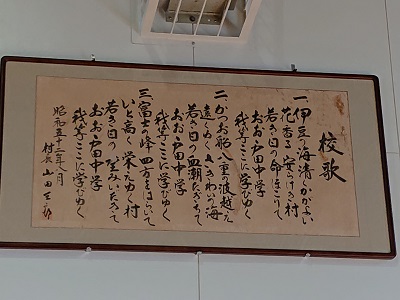 校歌
一、伊豆の海清くかがよい
花香る安らけき村
若き日の命をこめて
おお戸田中学
我等ここに学びゆく
二、かつお船八重の波越え
遠くゆくさきわいの海
若き日の血潮たぎちて
おお戸田中学
我等ここに学びゆく
三、富士の峰四方をはらいて
いと高く栄えゆく村
若き日の望みいだきて
おお戸田中学
我等ここに学びゆく
昭和五十二年八月
村長 山田